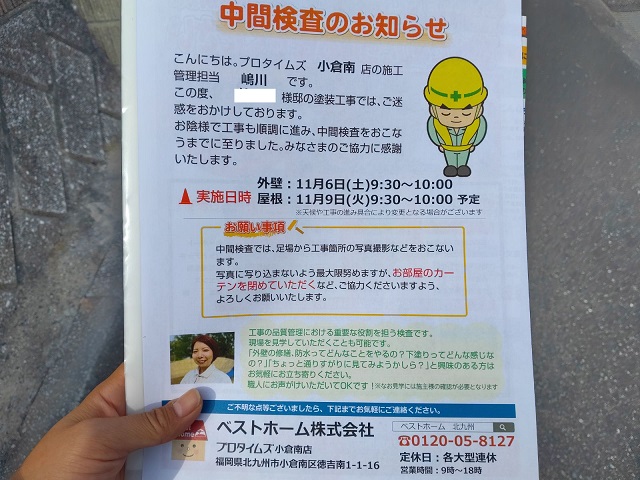 中間検査のお知らせ
こんにちは。プロタイムズ 小倉南 店の施工
管理担当 嶋川 です。
この度、 様邸の塗装工事では、ご迷
惑をおかけしております。
お陰様で工事も順調に進み、中間検査をおこな
うまでに至りました。みなさまのご協力に感謝
いたします。
実施日時
外壁:11月6日(土)9:30～10:00
屋根:11月9日(火)9:30～10:00 予定
※天候や工事の進み具合により変更となる場合がございます
お願い事項
中間検査では、足場から工事箇所の写真撮影などをおこない
ます。
写真に写り込まないよう最大限努めますが、お部屋のカー
テンを閉めていただくなど、ご協力くださいますよう、
よろしくお願いいたします。
工事の品質管理における重要な役割を担う検査です。
現場を見学していただくことも可能です。
「外壁の修繕、防水ってどんなことをやるの?下塗りってどんな感じな
の?」「ちょっと通りすがりに見てみようかしら?」と興味のある方は
お気軽にお立ち寄りください。
職人にお声がけいただいてOKです!※なお見学には施主様の確認が必要となります
ご不明な点等ございましたら、下記までお気軽にご連絡ください。
ベストホーム株式会社
プロタイムズ小倉南店
福岡県北九州市小倉南区徳吉南1-1-16
ベストホーム 北九州
0120-05-8127
定休日:各大型連休
営業時間:9時～18時